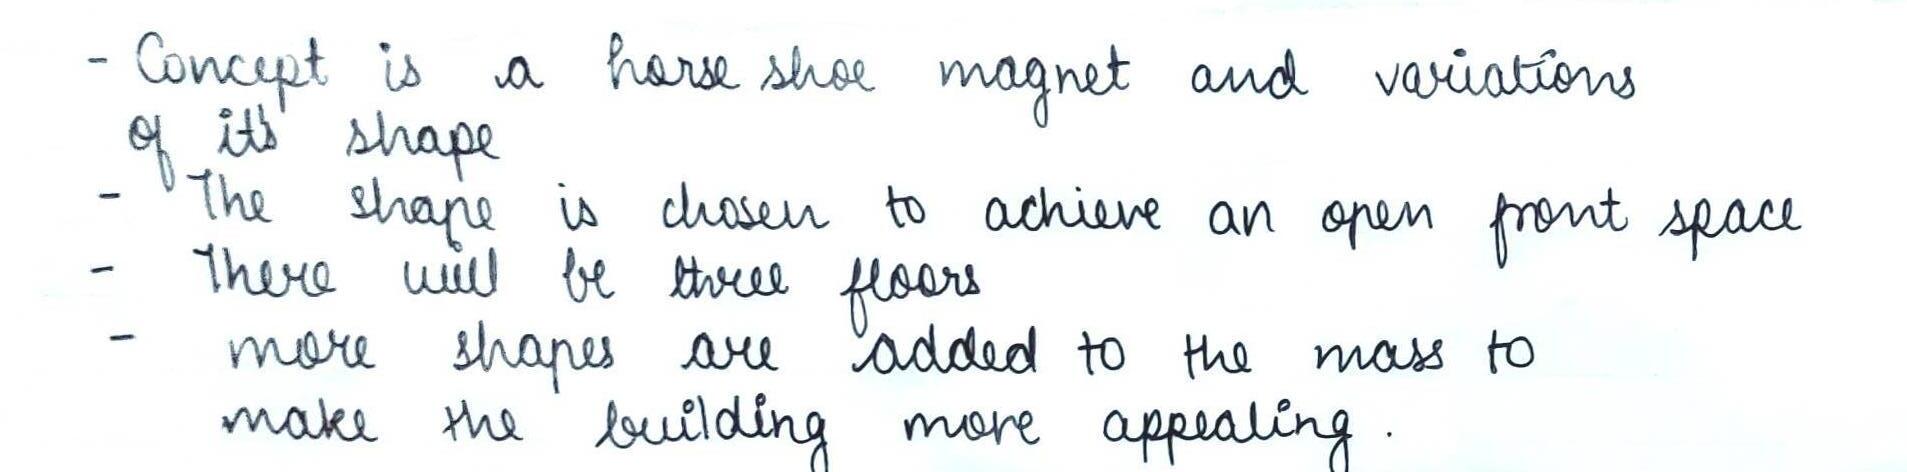 - Concept is a horse shoe magnet and variations
of it's shape
- The shape is chosen to achieve an open front space
- There will be three floors
- more shapes are added to the mass to
make the building more appealing.